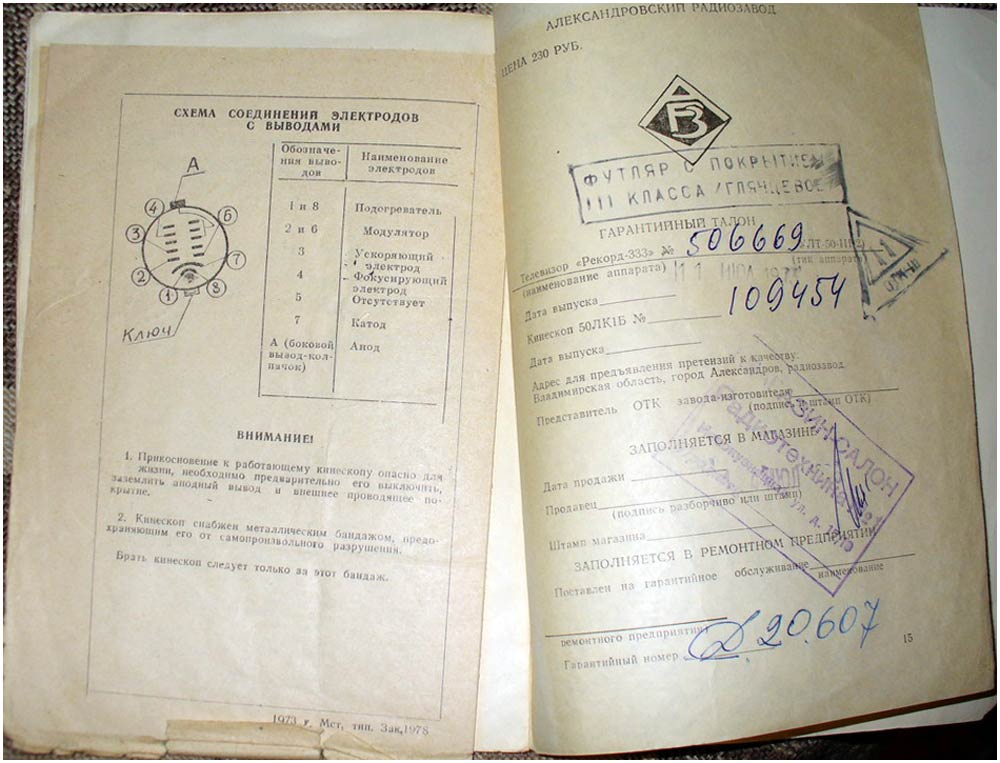 СХЕМА СОЕДИНЕНИЙ ЭЛЕКТРОДОВ
С ВЫВОДАМИ
А
4
6
3
7
2
1
8
Ключ
Обозначе-
ния выво-
дов
Наименование
электродов
1 и 8
Подогреватель
2 и 6
Модулятор
3
Ускоряющий
электрод
4
Фокусирующий
электрод
5
Отсутствует
7
Катод
А (боковой
вывод-кол-
пачок)
Анод
ВНИМАНИЕ!
1. Прикосновение к работающему кинескопу опасно для
жизни, необходимо предварительно его выключить,
заземлить анодный вывод и внешнее проводящее по-
крытие.
2. Кинескоп снабжен металлическим бандажом, предо-
храняющим его от самопроизвольного разрушения.
Брать кинескоп следует только за этот бандаж.
1973 г. Мст, тип. Зак,1978
АЛЕКСАНДРОВСКИЙ РАДИОЗАВОД
ЦЕНА 230 РУБ.
АРЗ
ФУТЛЯР С ПОКРЫТИЕМ
III КЛАССА /ГЛЯНЦЕВОЕ/
ГАРАНТИЙНЫЙ ТАЛОН
Телевизор «Рекорд-333» № 506669
(наименование аппарата)
(тип аппарата)
Дата выпуска
11 ИЮЛ
Кинескоп 50ЛК1Б № 109454
Дата выпуска
Адрес для предъявления претензий к качеству:
Владимирская область, город Александров, радиозавод
Представитель ОТК завода-изготовителя
(подпись и штамп ОТК)
ЗАПОЛНЯЕТСЯ В МАГАЗИНЕ
Дата продажи
Продавец
(подпись разборчиво или штамп)
Штамп магазина
МАГАЗИН-САЛОН
Радиотехника
ул. д.
ЗАПОЛНЯЕТСЯ В РЕМОНТНОМ ПРЕДПРИЯТИИ
Поставлен на гарантийное обслуживание
наименование
ремонтного предприятия
Гарантийный номер 20.607
15